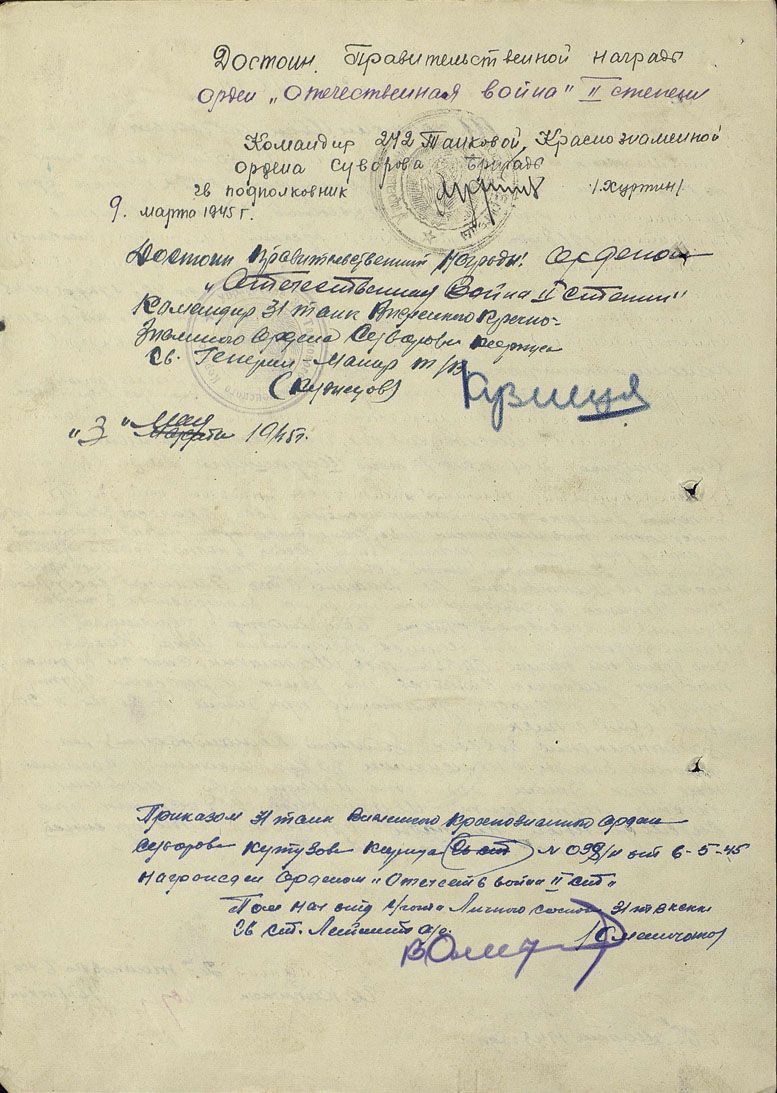 Достоин Правительственной награды
орден „Отечественная война" II степени
Командир 242 Танковой, Краснознаменной
ордена Суворова бригады
гв подполковник /Хуртин/
9. марта 1945 г.
Достоин правительственной награды! орденом
„Отечественная Война II степени"
Командир 31 танк Висленского Красно-
Знаменного ордена Суворова корпуса
Гв. Генерал Майор т/в
(Кузнецов) Кузнецов
„3" мая марта 1945г.
Приказом 31 танк Висленского Краснознаменного орден
Суворова Кутузова корпуса N 098/н от 6-5-45
награжден орденом „Отечеств война II ст"
Пом нач отд с/учета Личного состава 31 т
Гв ст. Лейтенант а/с.